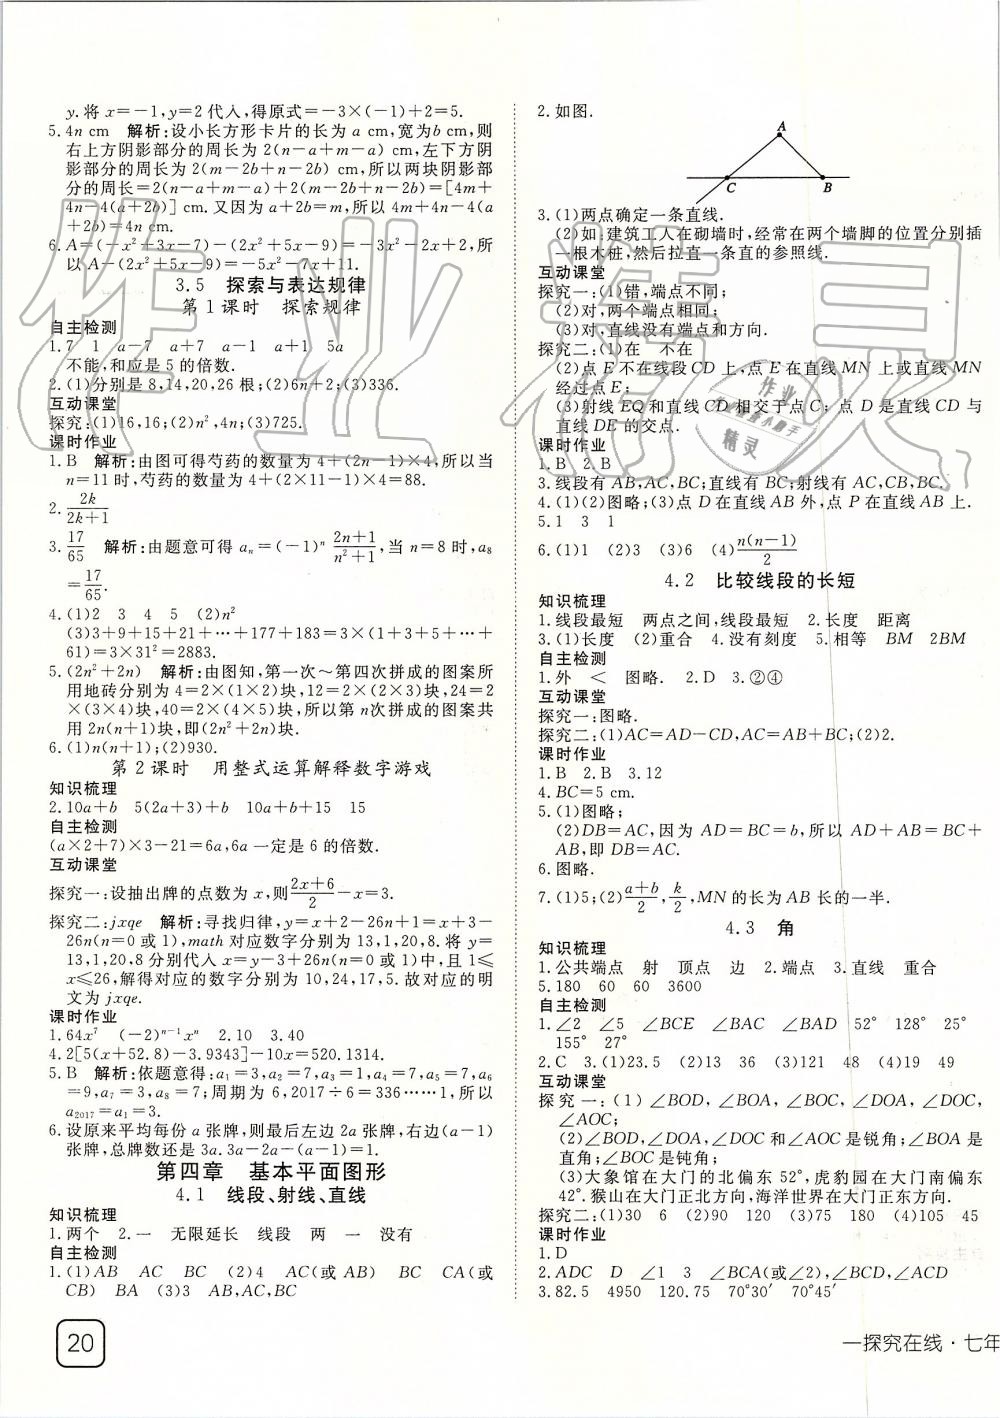 y.将x=-1,y=2代入,得原式=-3×(-1)+2=5.
5.4n cm 解析:设小长方形卡片的长为a cm,宽为b cm,则
右上方阴影部分的周长为2(n-a+m-a)cm,左下方阴
影部分的周长为2(m-2b+n-2b)cm,所以两块阴影部
分的周长=2(n-a+m-a)+2(m-2b+n-2b)=[4m+
4n-4(a+2b)]cm.又因为a+2b=m,所以4m+4n-4(a
+2b)=4n cm.
6.A=(-x²+3x-7)-(2x²+5x-9)=-3x²-2x+2,所
以A-(2x²+5x-9)=-5x²-7x+11.
3.5 探索与表达规律
第1课时 探索规律
自主检测
1.7 1 a-7 a+7 a-1 a+1 5a
不能,和应是5的倍数.
2.(1)分别是8,14,20,26根;(2)6n+2;(3)336.
互动课堂
探究:(1)16,16;(2)n²,4n;(3)725.
课时作业
1.B 解析:由图可得芍药的数量为4+(2n-1)×4,所以当
n=11时,芍药的数量为4+(2×11-1)×4=88.
2. 2k/(2k+1)
3. 17/65 解析:由题意可得aₙ=(-1)ⁿ (2n+1)/(n²+1),当n=8时,a₈
=17/65.
4.(1)2 3 4 5 (2)n²
(3)3+9+15+21+…+177+183=3×(1+3+5+…+
61)=3×31²=2883.
5.(2n²+2n) 解析:由图知,第一次~第四次拼成的图案所
用地砖分别为4=2×(1×2)块,12=2×(2×3)块,24=2
×(3×4)块,40=2×(4×5)块,所以第n次拼成的图案共
用2n(n+1)块,即(2n²+2n)块.
6.(1)n(n+1);(2)930.
第2课时 用整式运算解释数字游戏
知识梳理
2.10a+b 5(2a+3)+b 10a+b+15 15
自主检测
(a×2+7)×3-21=6a,6a一定是6的倍数.
互动课堂
探究一:设抽出牌的点数为x,则(2x+6)/2-x=3.
探究二:jxqe 解析:寻找归律,y=x+2-26n+1=x+3-
26n(n=0或1),math对应数字分别为13,1,20,8.将y=
13,1,20,8分别代入x=y-3+26n(n=0或1)中,且1≤
x≤26,解得对应的数字分别为10,24,17,5.故对应的明
文为jxqe.
课时作业
1.64x⁷ (-2)ⁿ⁻¹xⁿ 2.10 3.40
4.2[5(x+52.8)-3.9343]-10x=520.1314.
5.B 解析:依题意得:a₁=3,a₂=7,a₃=1,a₄=7,a₅=7,a₆
=9,a₇=3,a₈=7;周期为6,2017÷6=336……1,所以
a₂₀₁₇=a₁=3.
6.设原来平均每份a张牌,则最后左边2a张牌,右边(a-1)
张牌,总牌数还是3a.3a-2a-(a-1)=1.
第四章 基本平面图形
4.1 线段、射线、直线
知识梳理
1.两个 2.一 无限延长 线段 两 一 没有
自主检测
1.(1)AB AC BC (2)4 AC(或AB) BC CA(或
CB) BA (3)3 AB,AC,BC
20
2.如图.
A
C B
3.(1)两点确定一条直线.
(2)如:建筑工人在砌墙时,经常在两个墙脚的位置分别插
一根木桩,然后拉直一条直的参照线.
互动课堂
探究一:(1)错,端点不同;
(2)对,两个端点相同;
(3)对,直线没有端点和方向.
探究二:(1)在 不在
(2)点E不在线段CD上,点E在直线MN上或直线MN
经过点E;
(3)射线EQ和直线CD相交于点C;点D是直线CD与
直线DE的交点.
课时作业
1.B 2.B
3.线段有AB,AC,BC;直线有BC;射线有AC,CB,BC.
4.(1)(2)图略;(3)点D在直线AB外,点P在直线AB上.
5.1 3 1
6.(1)1 (2)3 (3)6 (4)n(n-1)/2
4.2 比较线段的长短
知识梳理
1.线段最短 两点之间,线段最短 2.长度 距离
3.(1)长度 (2)重合 4.没有刻度 5.相等 BM 2BM
自主检测
1.外 < 图略. 2.D 3.②④
互动课堂
探究一:图略.
探究二:(1)AC=AD-CD,AC=AB+BC;(2)2.
课时作业
1.B 2.B 3.12
4.BC=5 cm.
5.(1)图略;
(2)DB=AC,因为AD=BC=b,所以AD+AB=BC+
AB,即DB=AC.
6.图略.
7.(1)5;(2)(a+b)/2,k/2,MN的长为AB长的一半.
4.3 角
知识梳理
1.公共端点 射 顶点 边 2.端点 3.直线 重合
5.180 60 60 3600
自主检测
1.∠2 ∠5 ∠BCE ∠BAC ∠BAD 52° 128° 25°
155° 27°
2.C 3.(1)23.5 (2)13 36 (3)121 48 (4)19 49
互动课堂
探究一:(1)∠BOD,∠BOA,∠BOC,∠DOA,∠DOC,
∠AOC;
(2)∠BOD,∠DOA,∠DOC和∠AOC是锐角;∠BOA是
直角;∠BOC是钝角;
(3)大象馆在大门的北偏东52°,虎豹园在大门南偏东
42°.猴山在大门正北方向,海洋世界在大门正东方向.
探究二:(1)30 6 (2)90 120 (3)75 180 (4)105 45
课时作业
1.D
2.ADC D ∠1 3 ∠BCA(或∠2),∠BCD,∠ACD
3.82.5 4950 120.75 70°30′ 70°45′
一探究在线·七年
作业精灵
作业
精灵